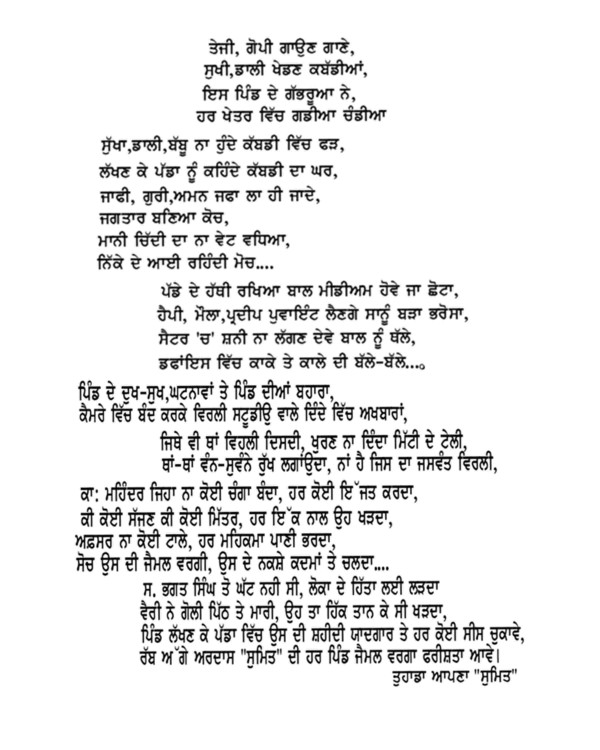 ਤੇਜੀ, ਗੋਪੀ ਗਾਉਣ ਗਾਣੇ,
ਸੁਖੀ,ਡਾਲੀ ਖੇਡਣ ਕਬੱਡੀਆਂ,
ਇਸ ਪਿੰਡ ਦੇ ਗੱਭਰੂਆ ਨੇ,
ਹਰ ਖੇਤਰ ਵਿੱਚ ਗਡੀਆ ਚੰਡੀਆ
ਸੁੱਖਾ,ਡਾਲੀ,ਬੱਬੂ ਨਾ ਹੁੰਦੇ ਕੱਬਡੀ ਵਿੱਚ ਫੜ,
ਲੱਖਣ ਕੇ ਪੱਡਾ ਨੂੰ ਕਹਿੰਦੇ ਕੱਬਡੀ ਦਾ ਘਰ,
ਜਾਫੀ, ਗੁਰੀ,ਅਮਨ ਜਫਾ ਲਾ ਹੀ ਜਾਦੇ,
ਜਗਤਾਰ ਬਣਿਆ ਕੋਚ,
ਮਾਨੀ ਚਿੱਦੀ ਦਾ ਨਾ ਵੇਟ ਵਧਿਆ,
ਨਿੱਕੇ ਦੇ ਆਈ ਰਹਿੰਦੀ ਮੋਚ....
ਪੱਡੇ ਦੇ ਹੱਥੀ ਰਖਿਆ ਬਾਲ ਮੀਡੀਅਮ ਹੋਵੇ ਜਾ ਛੋਟਾ,
ਹੈਪੀ, ਮੌਲਾ,ਪ੍ਰਦੀਪ ਪੁਵਾਇੰਟ ਲੈਣਗੇ ਸਾਨੂੰ ਬੜਾ ਭਰੋਸਾ,
ਸੈਟਰ 'ਚ' ਸ਼ਨੀ ਨਾ ਲੱਗਣ ਦੇਵੇ ਬਾਲ ਨੂੰ ਥੱਲੇ,
ਡਫਾਂਇਸ ਵਿੱਚ ਕਾਕੇ ਤੇ ਕਾਲੇ ਦੀ ਬੱਲੇ-ਬੱਲੇ...।
ਪਿੰਡ ਦੇ ਦੁਖ-ਸੁਖ,ਘਟਨਾਵਾਂ ਤੇ ਪਿੰਡ ਦੀਆਂ ਬਹਾਰਾ,
ਕੈਮਰੇ ਵਿੱਚ ਬੰਦ ਕਰਕੇ ਵਿਰਲੀ ਸਟੂਡੀਉ ਵਾਲੇ ਦਿੰਦੇ ਵਿੱਚ ਅਖਬਾਰਾਂ,
ਜਿਥੇ ਵੀ ਥਾਂ ਵਿਹਲੀ ਦਿਸਦੀ, ਖੁਰਣ ਨਾ ਦਿੰਦਾ ਮਿੱਟੀ ਦੇ ਟੇਲੀ,
ਥਾਂ-ਥਾਂ ਵੰਨ-ਸੁਵੰਨੇ ਰੁੱਖ ਲਗਾਂਉਦਾ, ਨਾਂ ਹੈ ਜਿਸ ਦਾ ਜਸਵੰਤ ਵਿਰਲੀ,
ਕਾ: ਮਹਿੰਦਰ ਜਿਹਾ ਨਾ ਕੋਈ ਚੰਗਾ ਬੰਦਾ, ਹਰ ਕੋਈ ਇੱਜਤ ਕਰਦਾ,
ਕੀ ਕੋਈ ਸੱਜਣ ਕੀ ਕੋਈ ਮਿੱਤਰ, ਹਰ ਇੱਕ ਨਾਲ ਉਹ ਖੜਦਾ,
ਅਫ਼ਸਰ ਨਾ ਕੋਈ ਟਾਲੇ, ਹਰ ਮਹਿਕਮਾ ਪਾਣੀ ਭਰਦਾ,
ਸੋਚ ਉਸ ਦੀ ਜੈਮਲ ਵਰਗੀ, ਉਸ ਦੇ ਨਕਸ਼ੇ ਕਦਮਾਂ ਤੇ ਚਲਦਾ....
ਸ. ਭਗਤ ਸਿੰਘ ਤੋ ਘੱਟ ਨਹੀ ਸੀ, ਲੋਕਾ ਦੇ ਹਿੱਤਾ ਲਈ ਲੜਦਾ
ਵੈਰੀ ਨੇ ਗੋਲੀ ਪਿੱਠ ਤੇ ਮਾਰੀ, ਉਹ ਤਾ ਹਿੱਕ ਤਾਨ ਕੇ ਸੀ ਖੜਦਾ,
ਪਿੰਡ ਲੱਖਣ ਕੇ ਪੱਡਾ ਵਿੱਚ ਉਸ ਦੀ ਸ਼ਹੀਦੀ ਯਾਦਗਾਰ ਤੇ ਹਰ ਕੋਈ ਸੀਸ ਚੁਕਾਵੇ,
ਰੱਬ ਅੱਗੇ ਅਰਦਾਸ "ਸੁਮਿਤ" ਦੀ ਹਰ ਪਿੰਡ ਜੈਮਲ ਵਰਗਾ ਫਰੀਸ਼ਤਾ ਆਵੇ।
ਤੁਹਾਡਾ ਆਪਣਾ "ਸੁਮਿਤ"